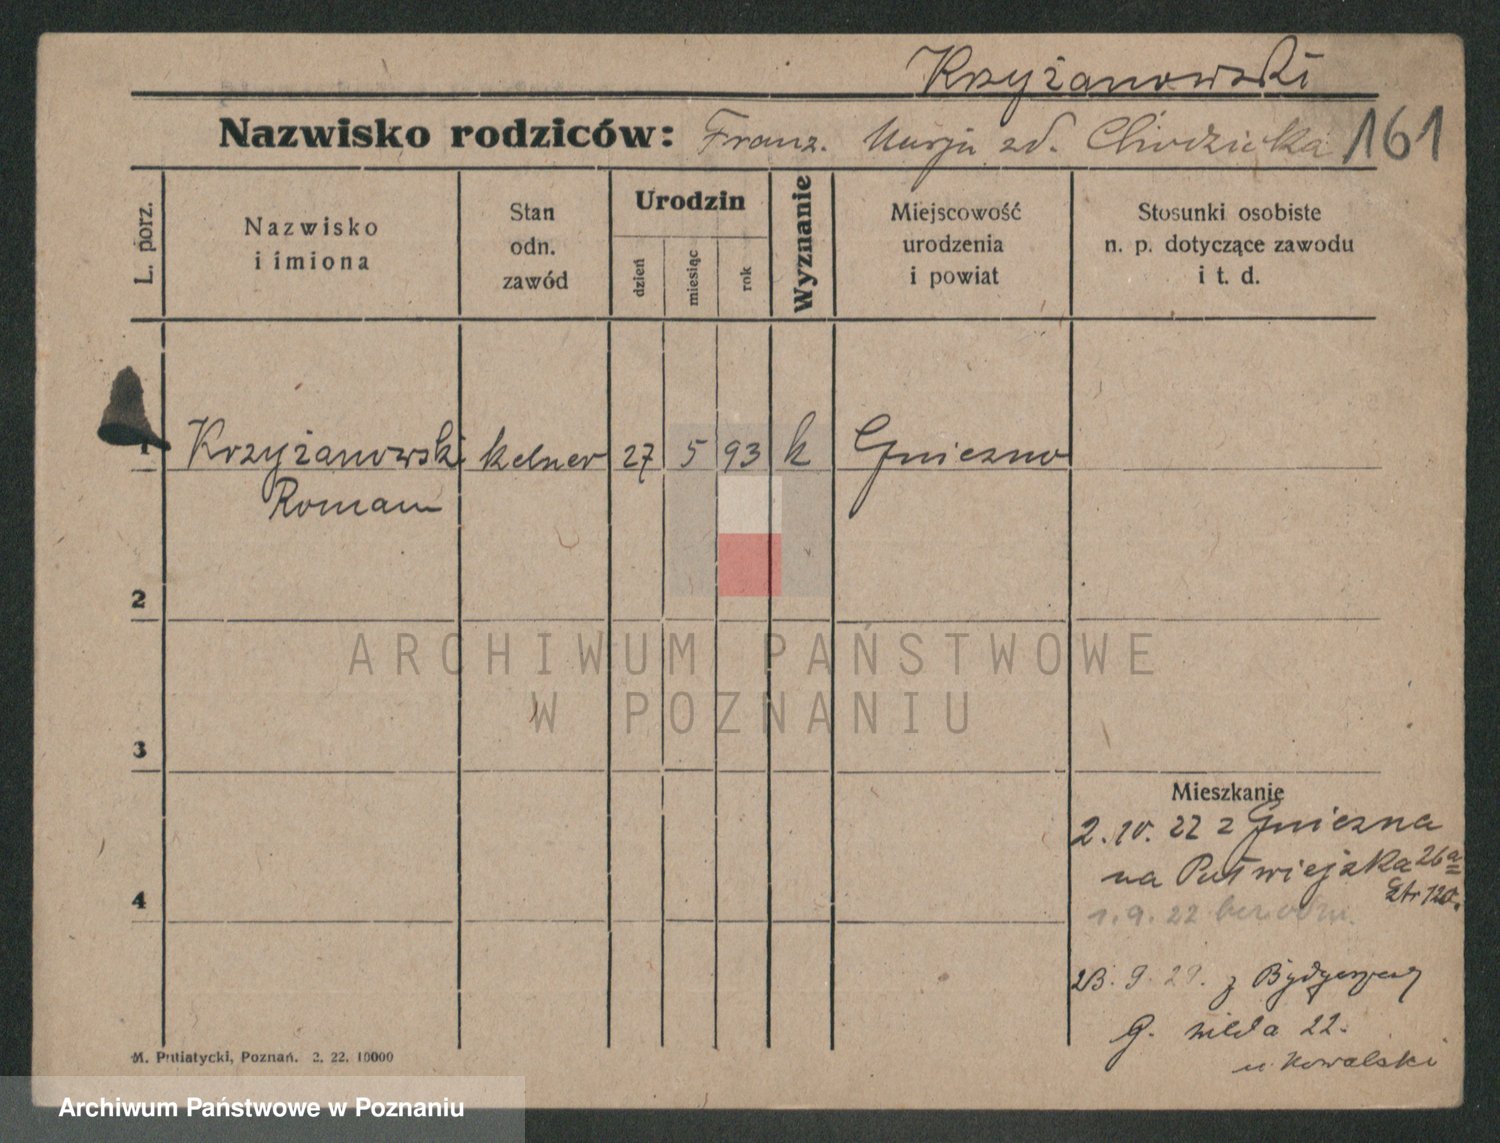 Krzyżanowski
Nazwisko rodziców: Franz. Marja zd. Chodzicka 161
L. porz.
Nazwisko
i imiona
Stan
odn.
zawód
Urodzin
dzień
miesiąc
rok
Wyznanie
Miejscowość
urodzenia
i powiat
Stosunki osobiste
n. p. dotyczące zawodu
i t. d.
1 Krzyżanowski kelner 27 5 93 k Gniezno
Roman
2
ARCHIWUM PAŃSTWOWE
W POZNANIU
3
Mieszkanie
2. 10. 22 z Gniezna
na Półwiejska 26a
Ztr 120.
4
1. 9. 22 bez odm.
23. 9. 29. z Bydgoszczy
G. Wilda 22.
u Kowalski
M. Putiatycki, Poznań. 2. 22. 10000
Archiwum Państwowe w Poznaniu